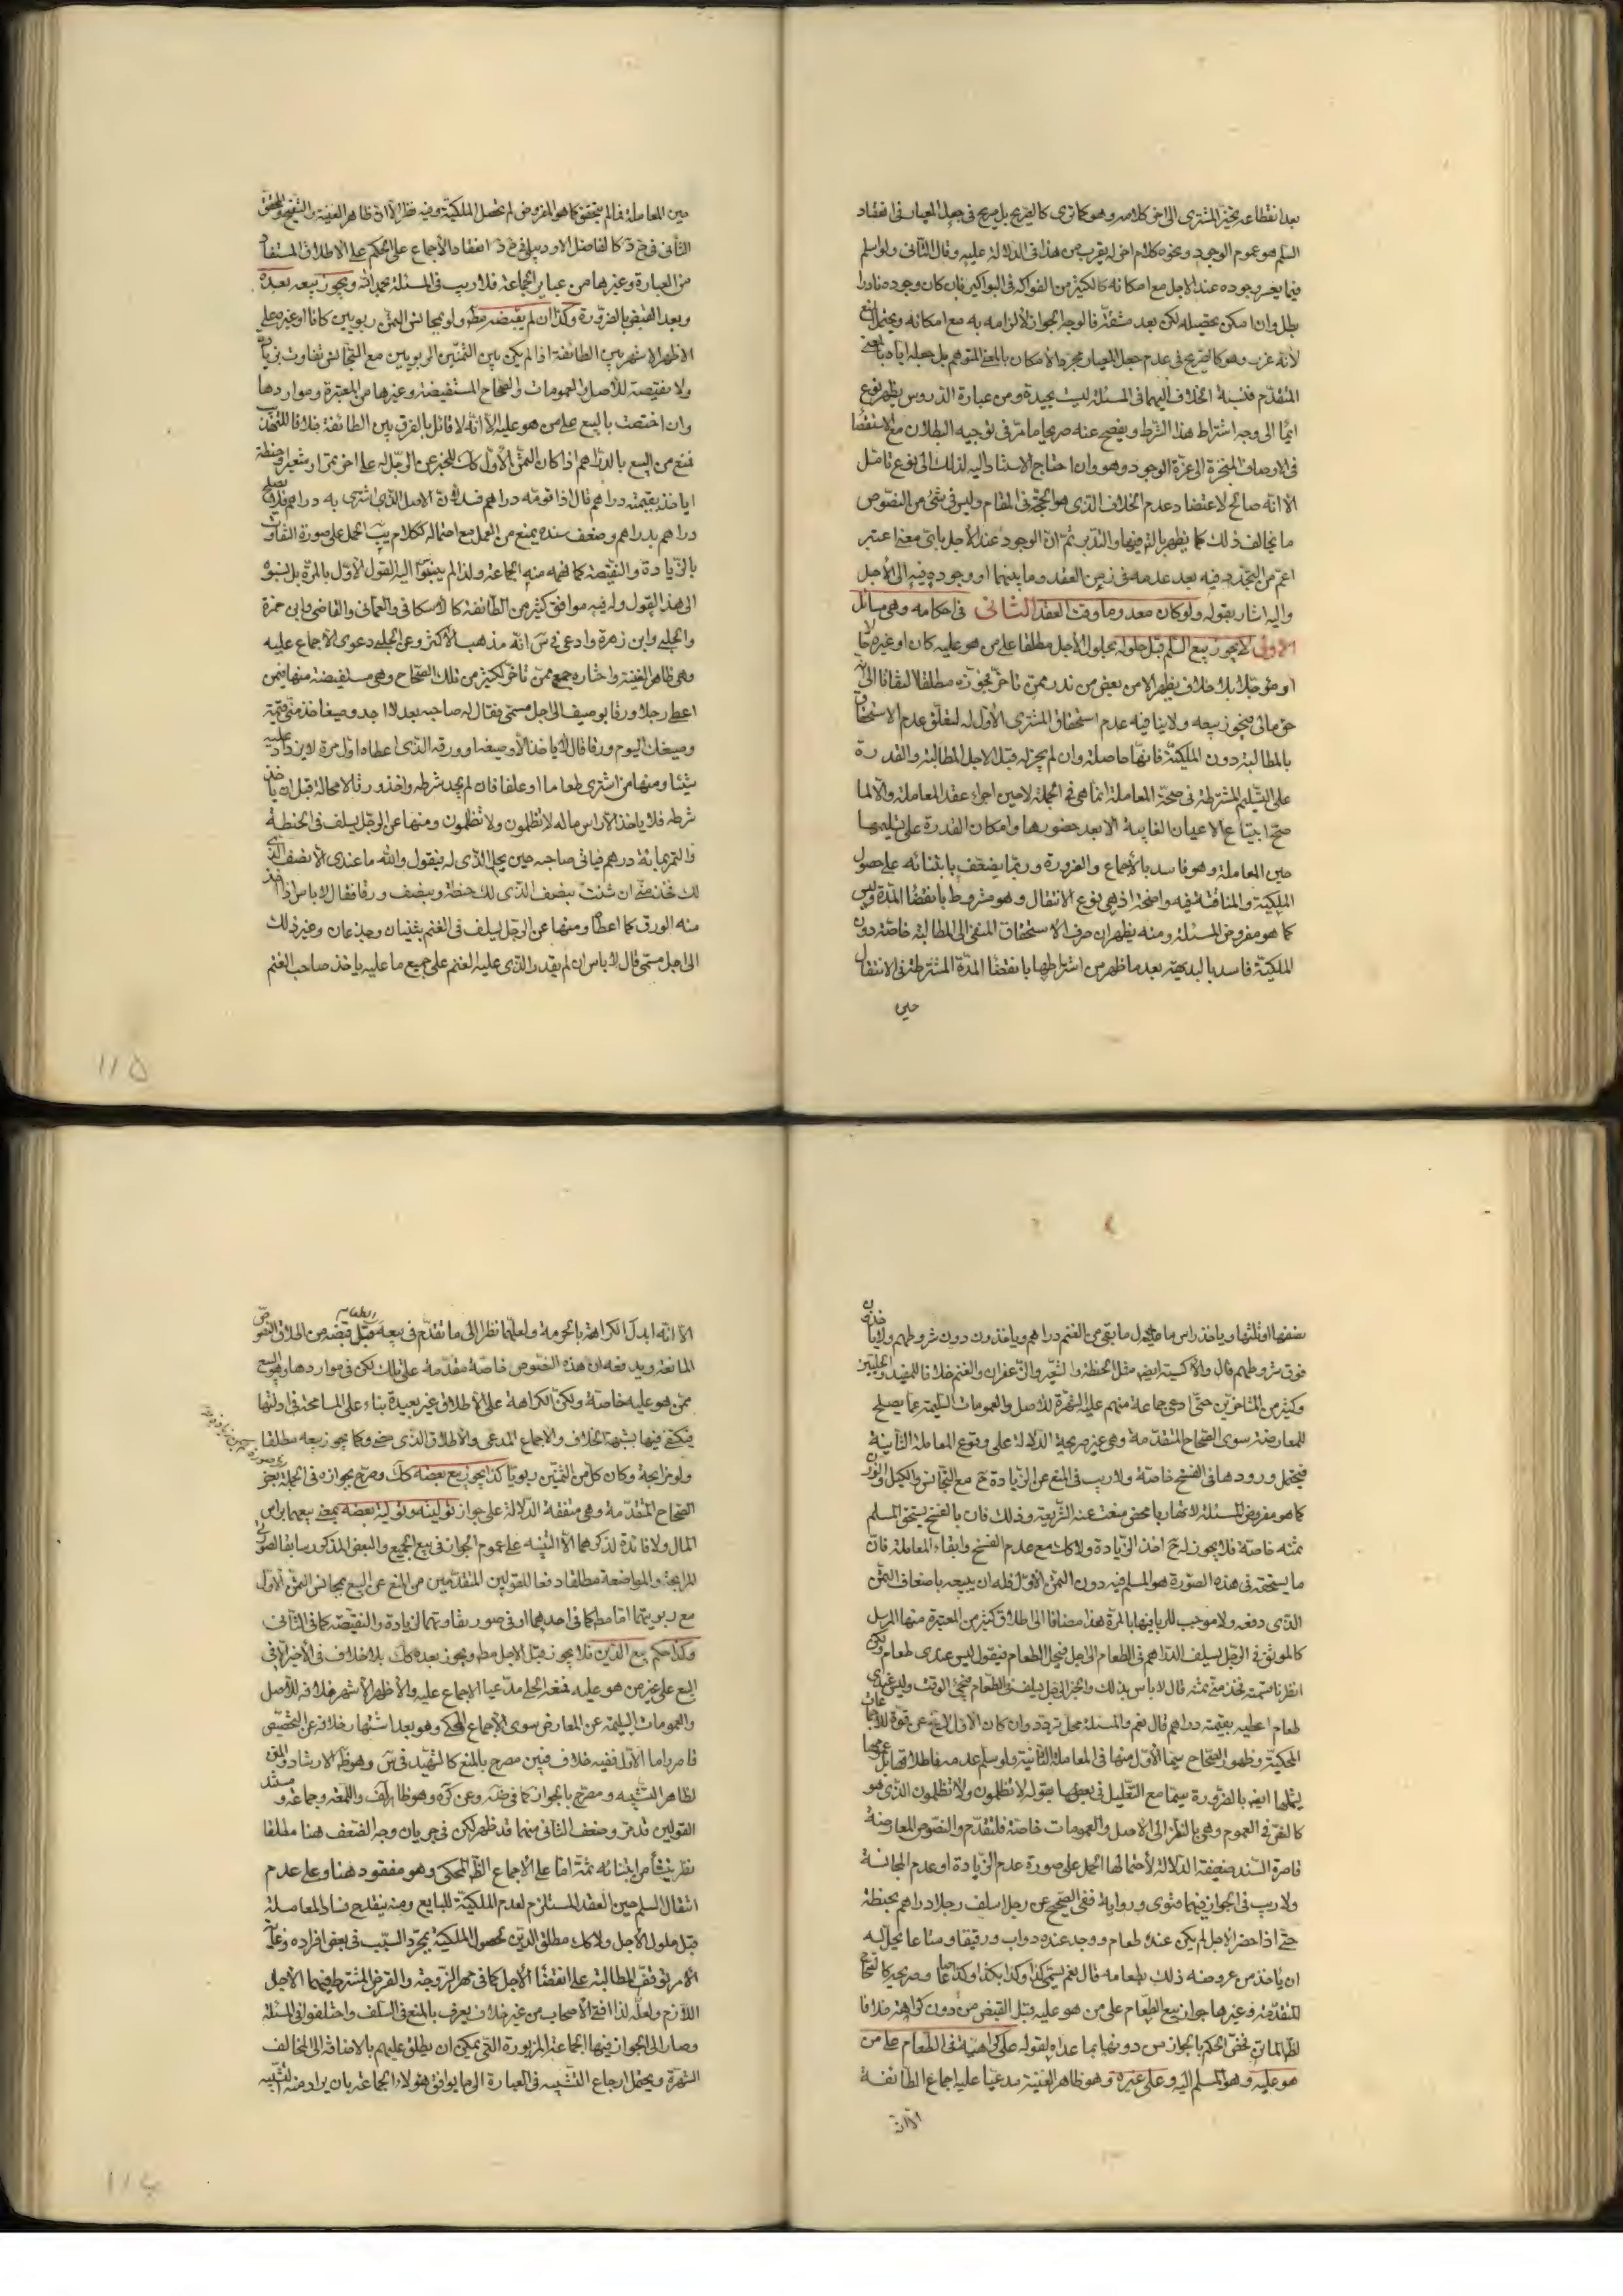 بعد انقطاعه يخيّر المشترى الى اخر كلامه وهو كما ترى كالصريح بل صريح فى جعل المعيار فى انعقاد
السلم هو عموم الوجود ونحوه كلام اخر له يقرب من هذا فى الدلالة عليه وقال الثانى ولو اسلم
فيما يعسر وجوده عند الاجل مع امكانه كالكثير من الفواكه فى البواكير فان كان وجوده نادرا
بطل وان امكن تحصيله لكن بعد مشقّة فالوجه الجواز لالزامه به مع امكانه ويحتمل المنع
لانه غرر وهو كالصّريح فى عدم جعل المعيار مجرد الامكان بالمعنى المتوهم بل جعله اياه بالمعنى
المتقدّم فنسبة الخلاف اليهما فى المسئلة ليست بجيدة ومن عبارة الدروس يظهر نوع
ايماء الى وجه اشتراط هذا الشّرط ويفصح عنه صريحا ما مرّ فى توجيه البطلان مع الاستقصاء
فى الاوصاف المنجرّة الى عزّة الوجود وهو وان احتاج الاستناد اليه لذلك الى نوع تامّل
الّا انّه صالح لاعتضاد عدم الخلاف الذى هو الحجّة فى المقام وليس فى شئ من النصوص
ما يخالف ذلك كما يظهر بالتتبع فيها والتدبّر ثمّ انّ الوجود عند الاجل باىّ معنى اعتبر
اعمّ من التجدّد فيه بعد عدمه فى زمن العقد وما بينهما او وجوده فيه الى الاجل
واليه اشار بقوله ولو كان معدوما وقت العقد الثانى فى احكامه وهى مسائل
الاولى لا يجوز بيع السّلم قبل حلوله بحلول الاجل مطلقا على من هو عليه كان او غيره حالّا
او مؤجّلا بلا خلاف يظهر الا من بعض من ندر ممّن تاخر فجوّزه مطلقا التفاتا الى انّه
حقّ مالى فيجوز بيعه ولا ينافيه عدم استحقاق المشترى الاوّل له لتعلّق عدم الاستحقاق
بالمطالبة دون الملكيّة فانّها حاصلة وان لم يجز له قبل الاجل المطالبة والقدرة
على التّسليم المشترطة فى صحّة المعاملة انّما هى فى الجملة لا حين اجراء عقد المعاملة والّا لما
صحّ ابتياع الاعيان الغايبة الّا بعد حضورها وامكان القدرة على تسليمها
حين المعاملة وهو فاسد بالاجماع والضرورة وربّما يضعّف بابتنائه على حصول
الملكيّة والمناقشة فيه واضحة اذ هى نوع الانتقال وهو مشروط بانقضاء المدّة وليس
كما هو مفروض المسئلة ومنه يظهر ان صرف الاستحقاق المنفى الى المطالبة خاصّة دون
الملكيّة فاسد بالبديهة بعد ما ظهر من اشتراطها بانقضاء المدّة المشترطة فى الانتقال
حين
حين المعاملة فما لم يتحقق كما هو المفروض لم يحصل الملكيّة وفيه نظر الّا ان ظاهر الغنية والتنقيح والمحقق
الثانى فى شرح كالفاضل الاردبيلى فى شرحه انعقاد الاجماع على الحكم على الاطلاق المستفاد
من العبارة وغيرها من عباير الجماعة فلا ريب فى المسئلة بحمد اللّه ويجوز بيعه بعده
وبعد القبض بالضرورة وكذا ان لم يقبضه مط ولو بمجانس الثمن ربويين كانا او غيره على
الاظهر الاشهر بين الطائفة اذا لم يكن بين الثمنين الربويين مع التجانس تفاوت بزيادة
ولا نقيصة للاصل والعمومات والصحاح المستفيضة وغيرها من المعتبرة ومواردها
وان اختصّت بالبيع على من هو عليه الّا انّه لا قائل بالفرق بين الطائفة خلافا للتهذيب
فمنع من البيع بالدراهم اذا كان الثمن الاوّل كك للخبر عن الرّجل له على اخر تمر او شعير او حنطة
اياخذ بقيمته دراهم قال اذا قومّه دراهم فسد لان الاصل الذى اشترى به دراهم فلا يصلح
دراهم بدراهم وضعف سنده يمنع من العمل مع احتماله ككلام يب الحمل على صورة التفاوت
بالزّيادة والنقيصة كما فهمه منه الجماعة ولذا لم ينسبوا اليه القول الاوّل بالمرّة بل نسبوه
الى هذا القول وله فيه موافق كثير من الطائفة كالاسكافى والعمانى والقاضى وابن حمزة
والحلبى وابن زهرة وادعى فى س انّه مذهب الاكثر وعن الحلبى دعوى الاجماع عليه
وهى ظاهر الغنية واختاره جمع ممّن تاخّر لكثير من تلك الصّحاح وهى مستفيضة منها فيمن
اعطى رجلا ورقا بوصيف الى اجل مسمّى فقال له صاحبه بعد لا اجد وصيفا خذ منّى قيمة
وصيفك اليوم ورقا قال لا ياخذ الّا وصيفه او ورقه الذى اعطاه اوّل مرة لا يزداد عليه
شيئا ومنها من اشترى طعاما او علفا فان لم يجد شرطه واخذ ورقا لا محالة قبل ان ياخذ
شرطه فلا ياخذ الّا راس ماله لا تظلمون ولا تظلمون ومنها عن الرجل يسلف فى الحنطة
والتمر بمائة درهم فياتى صاحبه حين يحلّ الذى له فيقول واللّه ما عندى الّا نصف الذى
لك فخذ منّى ان شئت بنصف الذى لك حنطة وبنصف ورقا فقال لا باس اذا اخذ
منه الورق كما اعطاه ومنها عن الرّجل يسلف فى الغنم بثنيان وجذعان وغير ذلك
الى اجل مسمّى قال لا باس ان لم يقدر الذى عليه الغنم على جميع ما عليه ياخذ صاحب الغنم
١١٥
نصفها او ثلثها وياخذ راس مال ما بقى من الغنم دراهم وياخذون دون شروطهم ولا ياخذون
فوق شروطهم قال والاكسية ايضا مثل الحنطة والشعير والزّعفران والغنم خلافا للمفيد والحلّيين
وكثير من المتاخرين حتّى ادعى جماعة منهم عليه الشهرة للاصل والعمومات السليمة عمّا يصلح
للمعارضة سوى الصّحاح المتقدّمة وهى غير صريحة الدّلالة على وقوع المعاملة الثانية
فيحتمل ورودها فى الفسخ خاصّة ولا ريب فى المنع عن الزّيادة ح مع التّجانس والكيل والوزن
كما هو مفروض المسئلة لانّها ربا محض منعت عنه الشّريعة وذلك فان بالفسخ يستحق المسلم
ثمنه خاصّة فلا يجوز له ح اخذ الزّيادة ولا كك مع عدم الفسخ وابقاء المعاملة فانّ
ما يستحقه فى هذه الصّورة هو المسلم فيه دون الثمن الاوّل فله ان يبيعه باضعاف الثمن
الذى دفعه ولا موجب للربا فيها بالمرّة هذا مضافا الى اطلاق كثير من المعتبرة منها المرسل
كالموثق فى الرّجل يسلف الدّراهم فى الطعام الى اجل فيحل الطعام فيقول ليس عندى طعام ولكن
انظر ما قيمته فخذ منّى ثمنه قال لا باس بذلك والخبر الرجل يسلفنى الطّعام فيجئ الوقت وليس عندى
طعام اعطيه بقيمته دراهم قال نعم والمسئلة محل تردّد وان كان الاوّل لا يخ عن قوّة للاجماعات
المحكيّة وظهور الصّحاح سيّما الاوّل منها فى المعاملة الثانية ولو سلّم عدمه فاطلاقها بل عمومها
يشملها ايض بالضّرورة سيّما مع التّعليل فى بعضها بقوله لا تظلمون ولا تظلمون الذى هو
كالنصّ فى العموم وهى بالنظر الى الاصل والعمومات خاصّة فلتقدّم والنصوص المعارضة
قاصرة السّند ضعيفة الدّلالة لاحتمالها الحمل على صورة عدم الزّيادة او عدم المجانسة
ولا ريب فى الجواز فيهما فتوى ورواية ففى الصّحيح عن رجل اسلف رجلا دراهم بحنطة
حتّى اذا حضر الاجل لم يكن عنده طعام ووجد عنده دواب ورقيقا ومتاعا يحلّ له
ان ياخذ من عروضه ذلك بطعامه قال نعم يسمّى كذا وكذا بكذا وكذا صاعا وصريحه كالصّحاح
المتقدّمة وغيرها جواز بيع الطّعام على من هو عليه قبل القبض من دون كراهة خلافا
لظ الماتن فخصّ الحكم بالجواز من دونها بما عداه لقوله على كراهية فى الطّعام على من
هو عليه وهو المسلم اليه وعلى غيره وهو ظاهر الغنية مدعيا عليه اجماع الطائفة
الّا انّه
الّا انّه ابدل الكراهة بالحرمة ولعلّهما نظرا الى ما تقدّم فى بيعه قبل قبضه من اطلاق النصوص
المانعة ويدفعه ان هذه النّصوص خاصّة مقدّمة على تلك لكن فى مواردها وهو البيع
ممّن هو عليه خاصّة ولكن الكراهة على الاطلاق غير بعيدة بناء على المسامحة فى ادلتها
فيكتفى فيها بشبهة الخلاف والاجماع المدعى والاطلاق الذى مضى وكما يجوز بيعه مطلقا
ولو مرابحة وكان كلّ من الثمنين ربويّا كذا يجوز بيع بعضه كك وصرّح بجوازه فى الجملة بعض
الصّحاح المتقدّمة وهى متفقة الدّلالة على جواز توليته وتولية بعضه بمعنى بيعهما براس
المال ولا فائدة لذكرهما الّا التّنبيه على عموم الجواز فى بيع الجميع والبعض المذكور سابقا لصورتى
المرابحة والمواضعة مطلقا دفعا للقولين المتقدّمين من المنع عن البيع بمجانس الثمن الاوّل
مع ربويّتهما امّا مط كما فى احدهما او فى صور تفاوتهما الزيادة والنقيصة كما فى الثّانى
وكذا حكم بيع الدّين فلا يجوز قبل الاجل مط ويجوز بعده كك بلا خلاف فى الاخير الّا فى
البيع على غير من هو عليه فمنعه الحلّى مدّعيا الاجماع عليه والاظهر الاشهر خلافه للاصل
والعمومات السّليمة عن المعارض سوى الاجماع المحكى وهو بعد اشتهار خلافه عن التّخصيص
قاصر وامّا الاوّل ففيه خلاف فبين مصرح بالمنع كالشّهيد فى س وهو ظ الارشاد والمتن
لظاهر التّشبيه ومصرّح بالجواز كما فى ضه وعن كره وهو ظاهر لف واللمعة وجماعة ومستند
القولين قد مرّ وضعف الثانى منهما قد ظهر لكن فى جريان وجه الضّعف هنا مطلقا
نظر ينشأ من ابتنائه ثمّة امّا على الاجماع الظّ المحكى وهو مفقود هنا وعلى عدم
انتقال السلم حين العقد المستلزم لعدم الملكيّة للبايع ومنه ينقدح فساد المعاملة
قبل حلول الاجل ولا كك مطلق الدّين لحصول الملكيّة بمجرّد السّبب فى بعض افراده وغاية
الامر توقّف المطالبة على انقضاء الاجل كما فى مهر الزوجة والقرض المشترط فيهما الاجل
اللازم ولعلّه لذا افتى الاصحاب من غير خلاف يعرف بالمنع فى السّلف واختلفوا فى المسئلة
وصار الى الجواز فيها الجماعة المزبورة التى يمكن ان يطلق عليهم بالاضافة الى المخالف
الشهرة ويحتمل ارجاع التشبيه فى العبارة الى ما يوافق هؤلاء الجماعة بان يراد منه التشبيه